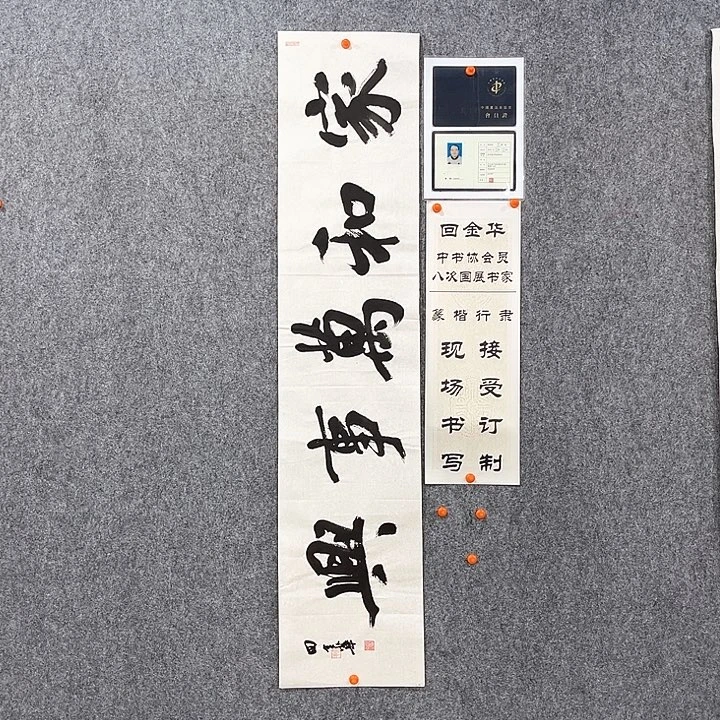 家和萬事興
中国书法家协会
會員證
回金华
中书协会员
八次国展书家
篆楷行隶
现场书写
接受订制